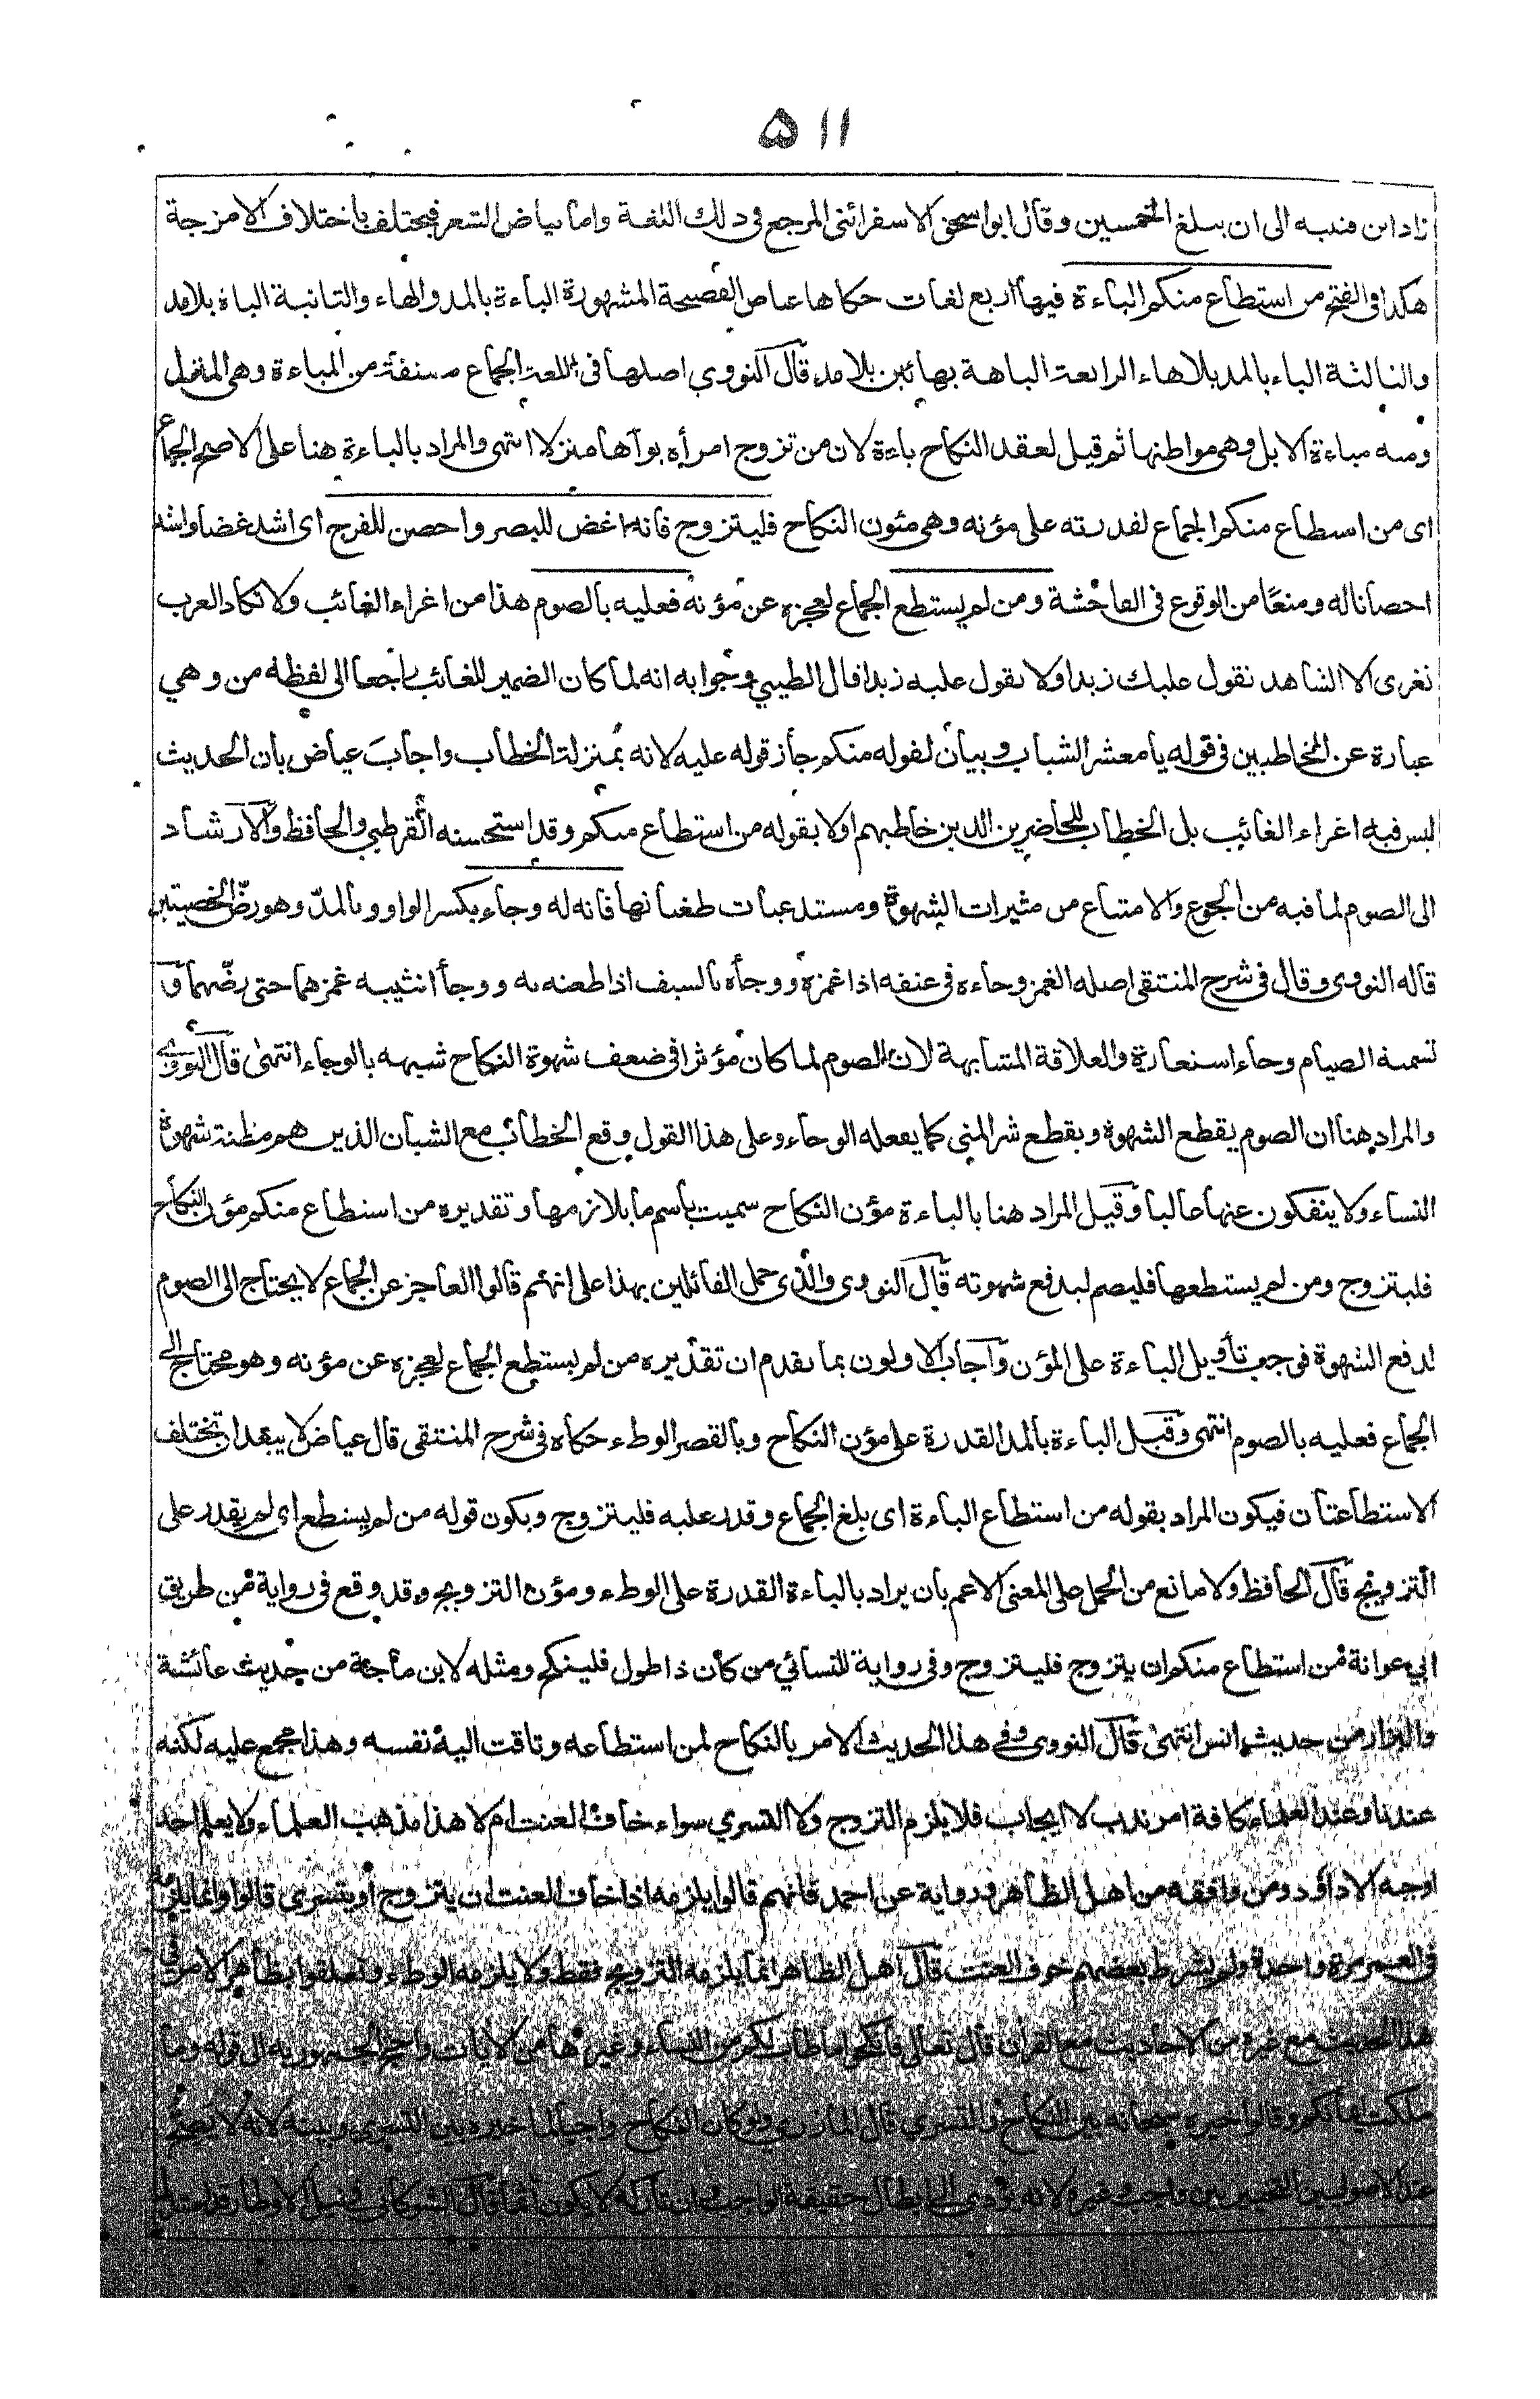 ٥١١
زاد ابن قتيبه الى ان يبلغ الخمسين وقال ابو اسحق الاسفرائنى المرجع فى ذلك اللغة واما بياض الشعر فيختلف باختلاف الامزجة
هكذا فى الفتح من استطاع منكم الباءة فيها اربع لغات حكاها عياض الفصيحة المشهورة الباءة بالمد والهاء والثانية الباة بلا مد
والثالثة الباء بالمد بلا هاء الرابعة الباهة بهائين بلا مد قال النووي اصلها فى اللغة الجماع مشتقة من المباءة وهى المنزل
ومنه مباءة الابل وهى مواطنها ثم قيل لعقد النكاح باءة لان من تزوج امرأه بوأها منزلا انتهى والمراد بالباءة هنا على الاصح الجماع
اى من استطاع منكم الجماع لقدرته على مؤنه وهى مئون النكاح فليتزوج فانه اغض للبصر واحصن للفرج اى اشد غضا واشد
احصانا له ومنعًا من الوقوع فى الفاحشة ومن لم يستطع الجماع لعجزه عن مؤنه فعليه بالصوم هذا من اغراء الغائب ولا تكاد العرب
تغرى الا الشاهد تقول عليك زيدا ولا تقول عليه زيدا قال الطيبي وجوابه انه لما كان الضمير للغائب راجعا الى لفظة من وهي
عبارة عن المخاطبين فى قوله يا معشر الشباب وبيان لقوله منكم جاز قوله عليه لانه بمنزلة الخطاب واجابَ عياض بان الحديث
ليس فيه اغراء الغائب بل الخطاب للحاضرين الذين خاطبهم اولا بقوله من استطاع منكم وقد استحسنه القرطبي والحافظ والارشاد
الى الصوم لما فيه من الجوع والامتناع من مثيرات الشهوة ومستدعيات طغيانها فانه له وجاء بكسر الواو وبالمدّ وهو رضّ الخصيتين
قاله النووى وقال فى شرح المنتقى اصله الغمز وجاءه فى عنقه اذا غمزه ووجأه بالسيف اذا طعنه به ووجأ انثييه غمزهما حتى رضّهما و
تسمية الصيام وجاء استعارة والعلاقة المشابهة لان الصوم لما كان مؤثرا فى ضعف شهوة النكاح شبهه بالوجاء انتهى قال النووي
والمراد هنا ان الصوم يقطع الشهوة ويقطع شر المنى كما يفعله الوجاء وعلى هذا القول وقع الخطاب مع الشبان الذين هم مظنة شهوة
النساء ولا ينفكون عنها غالبا وقيل المراد هنا بالباءة مؤن النكاح سميت باسم ما يلازمها وتقديره من استطاع منكم مؤن النكاح
فليتزوج ومن لم يستطعها فليصم ليدفع شهوته قال النووى والذى حمل القائلين بهذا على انهم قالوا العاجز عن الجماع لا يحتاج الى الصوم
لدفع الشهوة فوجب تأويل الباءة على المؤن واجاب الاولون بما تقدم ان تقديره من لم يستطع الجماع لعجزه عن مؤنه وهو محتاج الى
الجماع فعليه بالصوم انتهى وقيل الباءة بالمد القدرة على مؤن النكاح وبالقصر الوطء حكاه فى شرح المنتقى قال عياض لا يبعد ان تختلف
الاستطاعتان فيكون المراد بقوله من استطاع الباءة اى بلغ الجماع وقدر عليه فليتزوج ويكون قوله من لم يستطع اى لم يقدر على
التزويج قال الحافظ ولا مانع من الحمل على المعنى الاعم بان يراد بالباءة القدرة على الوطء ومؤن التزويج وقد وقع فى رواية من طريق
ابي عوانة من استطاع منكم ان يتزوج فليتزوج وفى رواية للنسائي من كان ذا طول فلينكح ومثله لابن ماجة من حديث عائشة
والبزار من حديث انس انتهى قال النووى وفي هذا الحديث الامر بالنكاح لمن استطاعه وتاقت اليه نفسه وهذا مجمع عليه لكنه
عندنا وعند العلماء كافة امر ندب لا ايجاب فلا يلزم التزوج ولا التسري سواء خاف العنت ام لا هذا مذهب العلماء ولا يعلم احد
اوجبه الا داؤد ومن وافقه من اهل الظاهر ورواية عن احمد فانهم قالوا يلزمه اذا خاف العنت ان يتزوج او يتسرى قالوا وانما يلزمه
فى العمر مرة واحدة ولم يشرط بعضهم خوف العنت قال اهل الظاهر انما يلزمه التزويج فقط ولا يلزمه الوطء وتعلقوا بظاهر الامر فى
هذا الحديث مع غيره من الاحاديث مع القران قال تعالى فانكحوا ما طاب لكم من النساء وغيرها من الايات واحتج الجمهور به الى قوله وما
ملكت ايمانكم وقالوا خيره سبحانه بين النكاح والتسري قال المازري ولو كان النكاح واجبا لما خيره بين التسري وبينه لانه لا يصح
عند الاصوليين التخيير بين واجب وغيره لانه يؤدى الى ابطال حقيقة الواجب وان تاركه لا يكون آثما قال الشوكاني فى نيل الاوطار